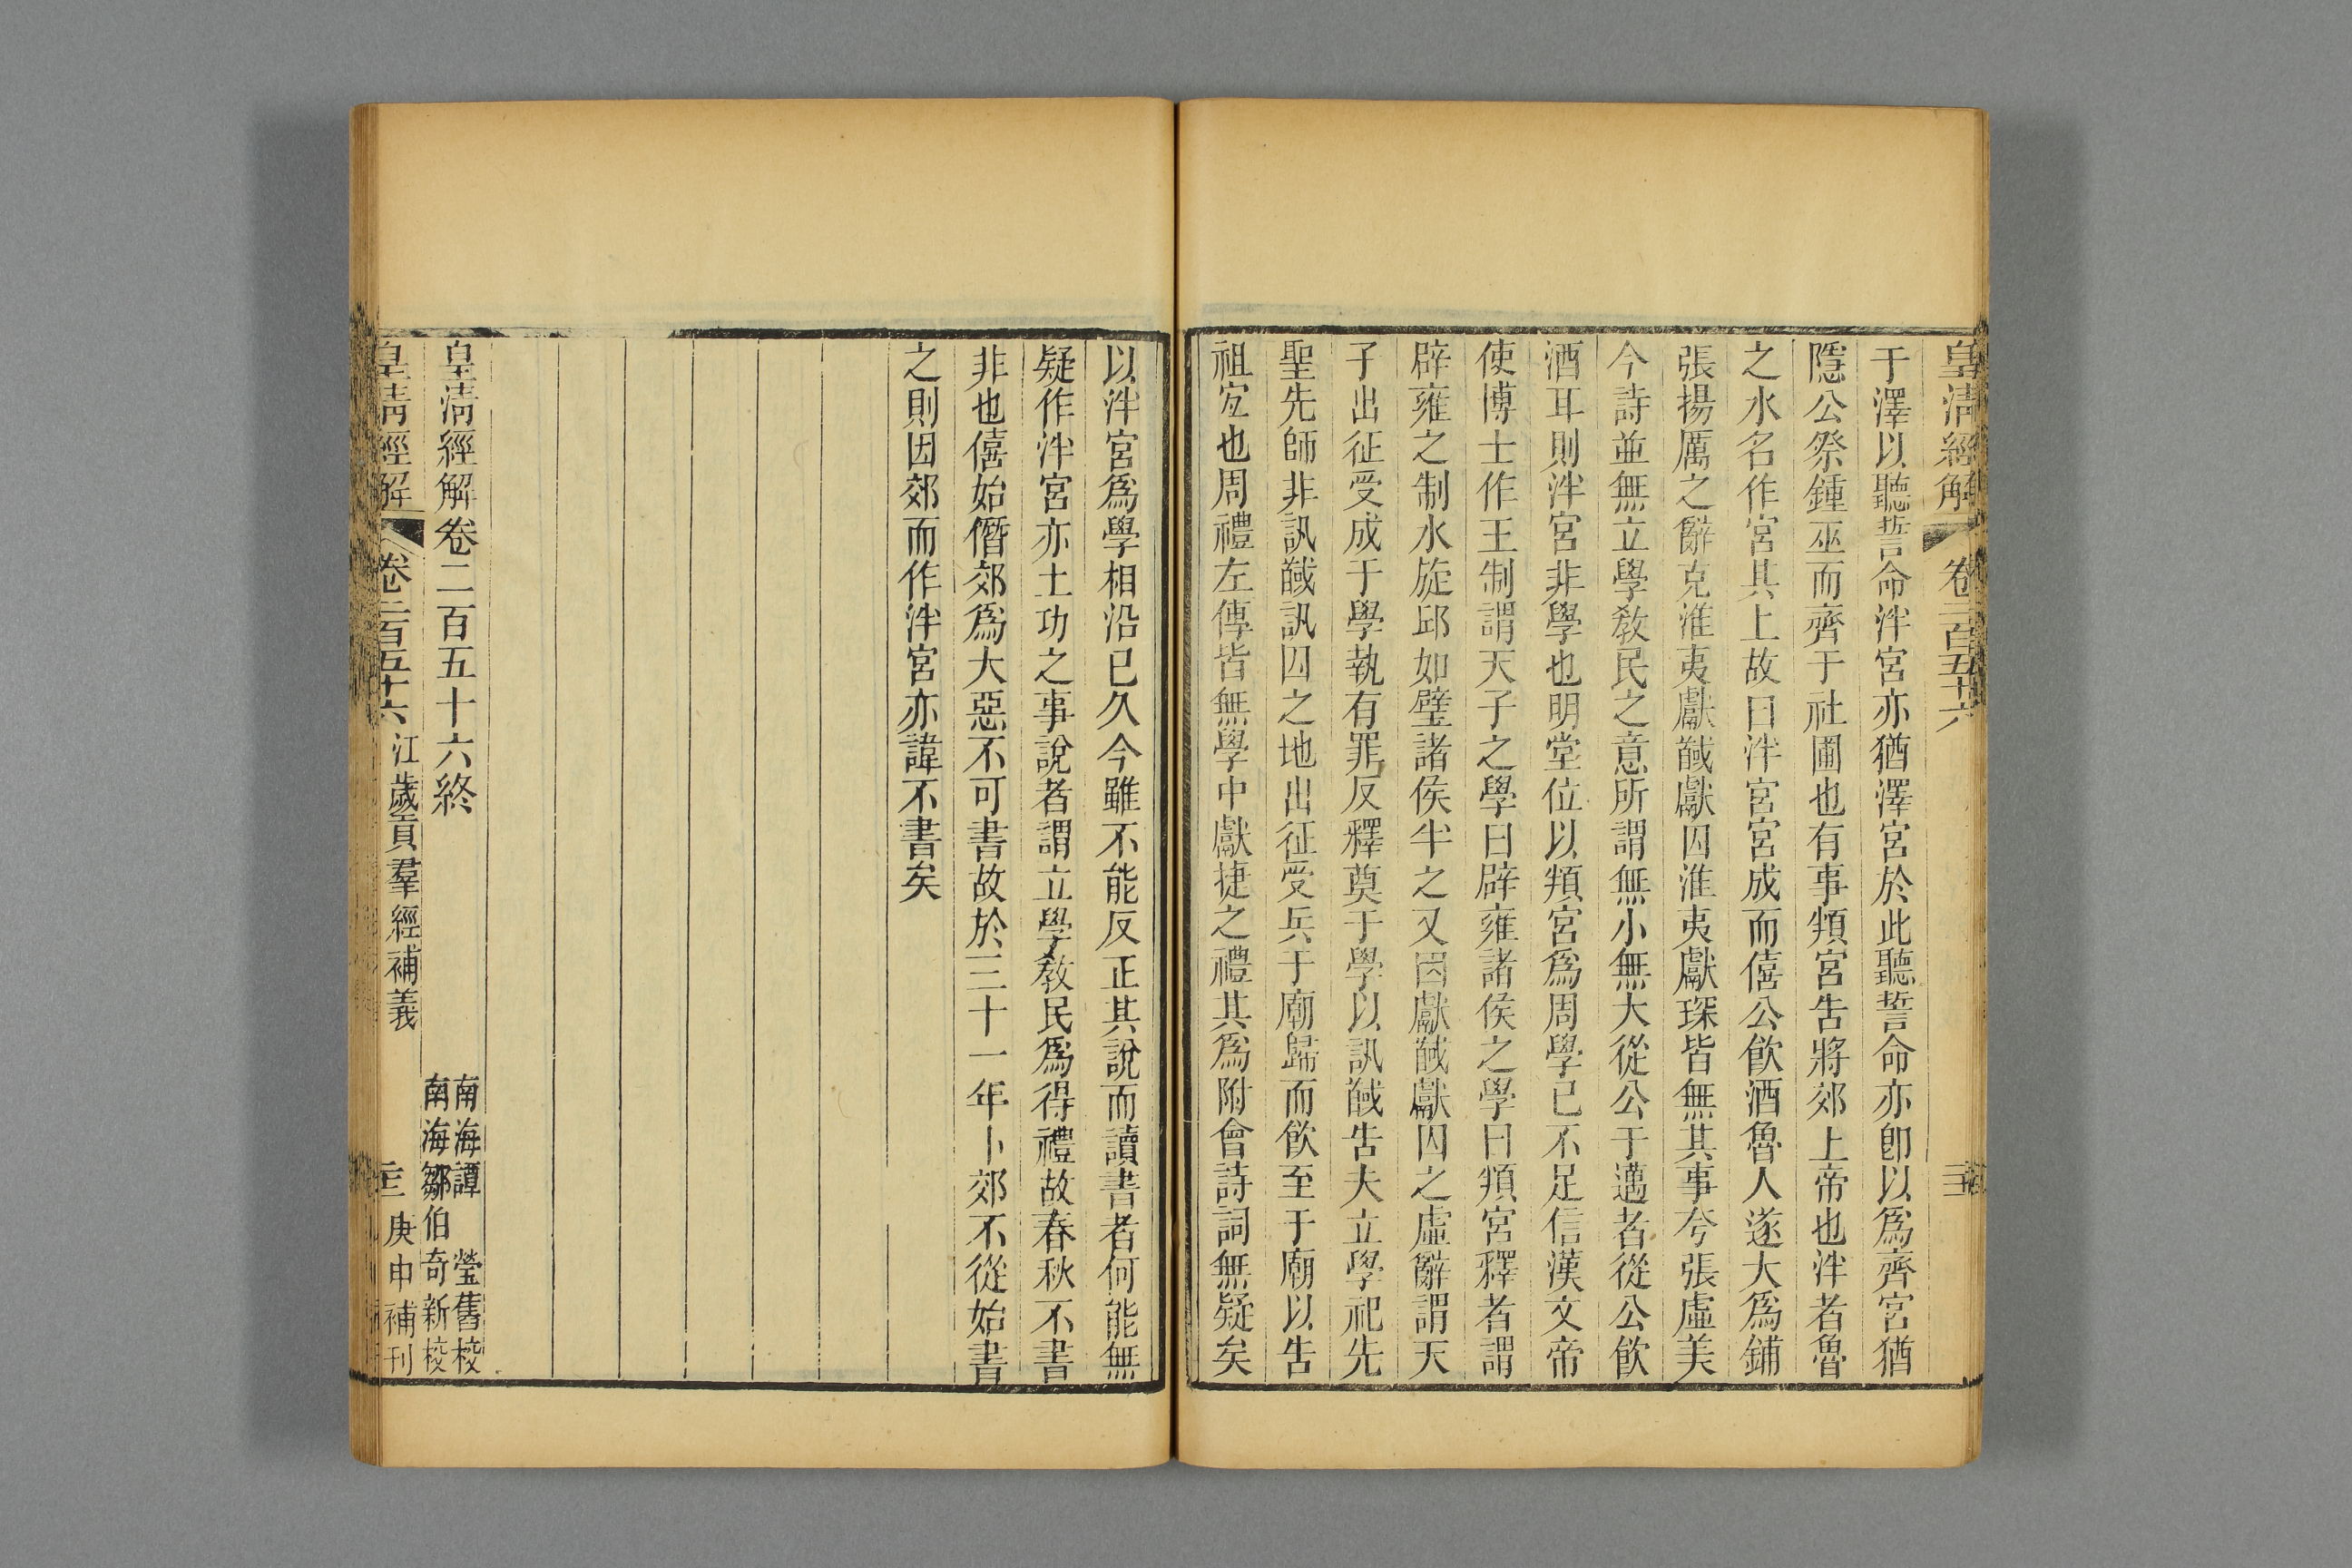 皇清經解 卷二百五十六
于澤以聽誓命泮宮亦猶澤宮於此聽誓命亦卽以爲齊宮猶
隱公祭鍾巫而齊于社圃也有事頖宮告將郊上帝也泮者魯
之水名作宮其上故曰泮宮宮成而僖公飮酒魯人遂大爲鋪
張揚厲之辭克淮夷獻馘獻囚淮夷獻琛皆無其事夸張虛美
今詩並無立學敎民之意所謂無小無大從公于邁者從公飮
酒耳則泮宮非學也明堂位以頖宮爲周學已不足信漢文帝
使博士作王制謂天子之學曰辟雍諸侯之學曰頖宮釋者謂
辟雍之制水旋邱如璧諸侯半之又因獻馘獻囚之虛辭謂天
子出征受成于學執有罪反釋奠于學以訊馘告夫立學祀先
聖先師非訊馘訊囚之地出征受兵于廟歸而飮至于廟以告
祖宐也周禮左傳皆無學中獻捷之禮其爲附會詩詞無疑矣
以泮宮爲學相沿已久今雖不能反正其說而讀書者何能無
疑作泮宮亦土功之事說者謂立學敎民爲得禮故春秋不書
非也僖始僭郊爲大惡不可書故於三十一年卜郊不從始書
之則因郊而作泮宮亦諱不書矣
皇清經解卷二百五十六終
南海譚 瑩舊校
南海鄒伯奇新校
皇清經解 卷二百五十六 江歲貢羣經補義 庚申補刊